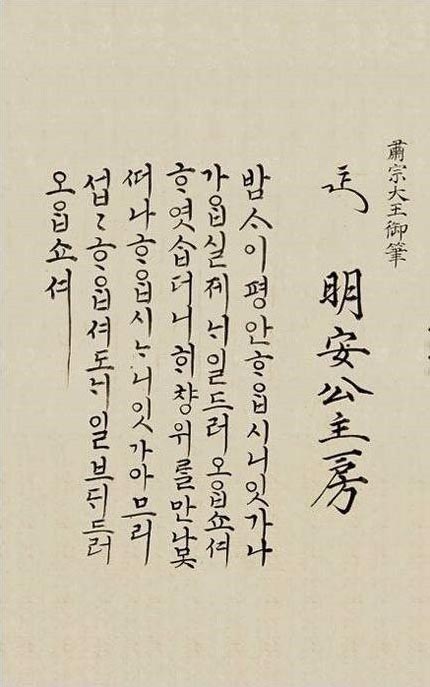 肅宗大王御筆
明安公主房
밤ᄉᆞ이평안ᄒᆞᄋᆞᆸ시니잇가나
가ᄋᆞᆸ실제ᄂᆡ일드러오ᄋᆞᆸ쇼셔
ᄒᆞ엿습더니ᄒᆡ챵위를만나못
ᄯᅥ나ᄒᆞᄋᆞᆸ시ᄂᆞ니잇가아므리
섭〃ᄒᆞᄋᆞᆸ셔도ᄂᆡ일브ᄃᆡ드러
오ᄋᆞᆸ쇼셔